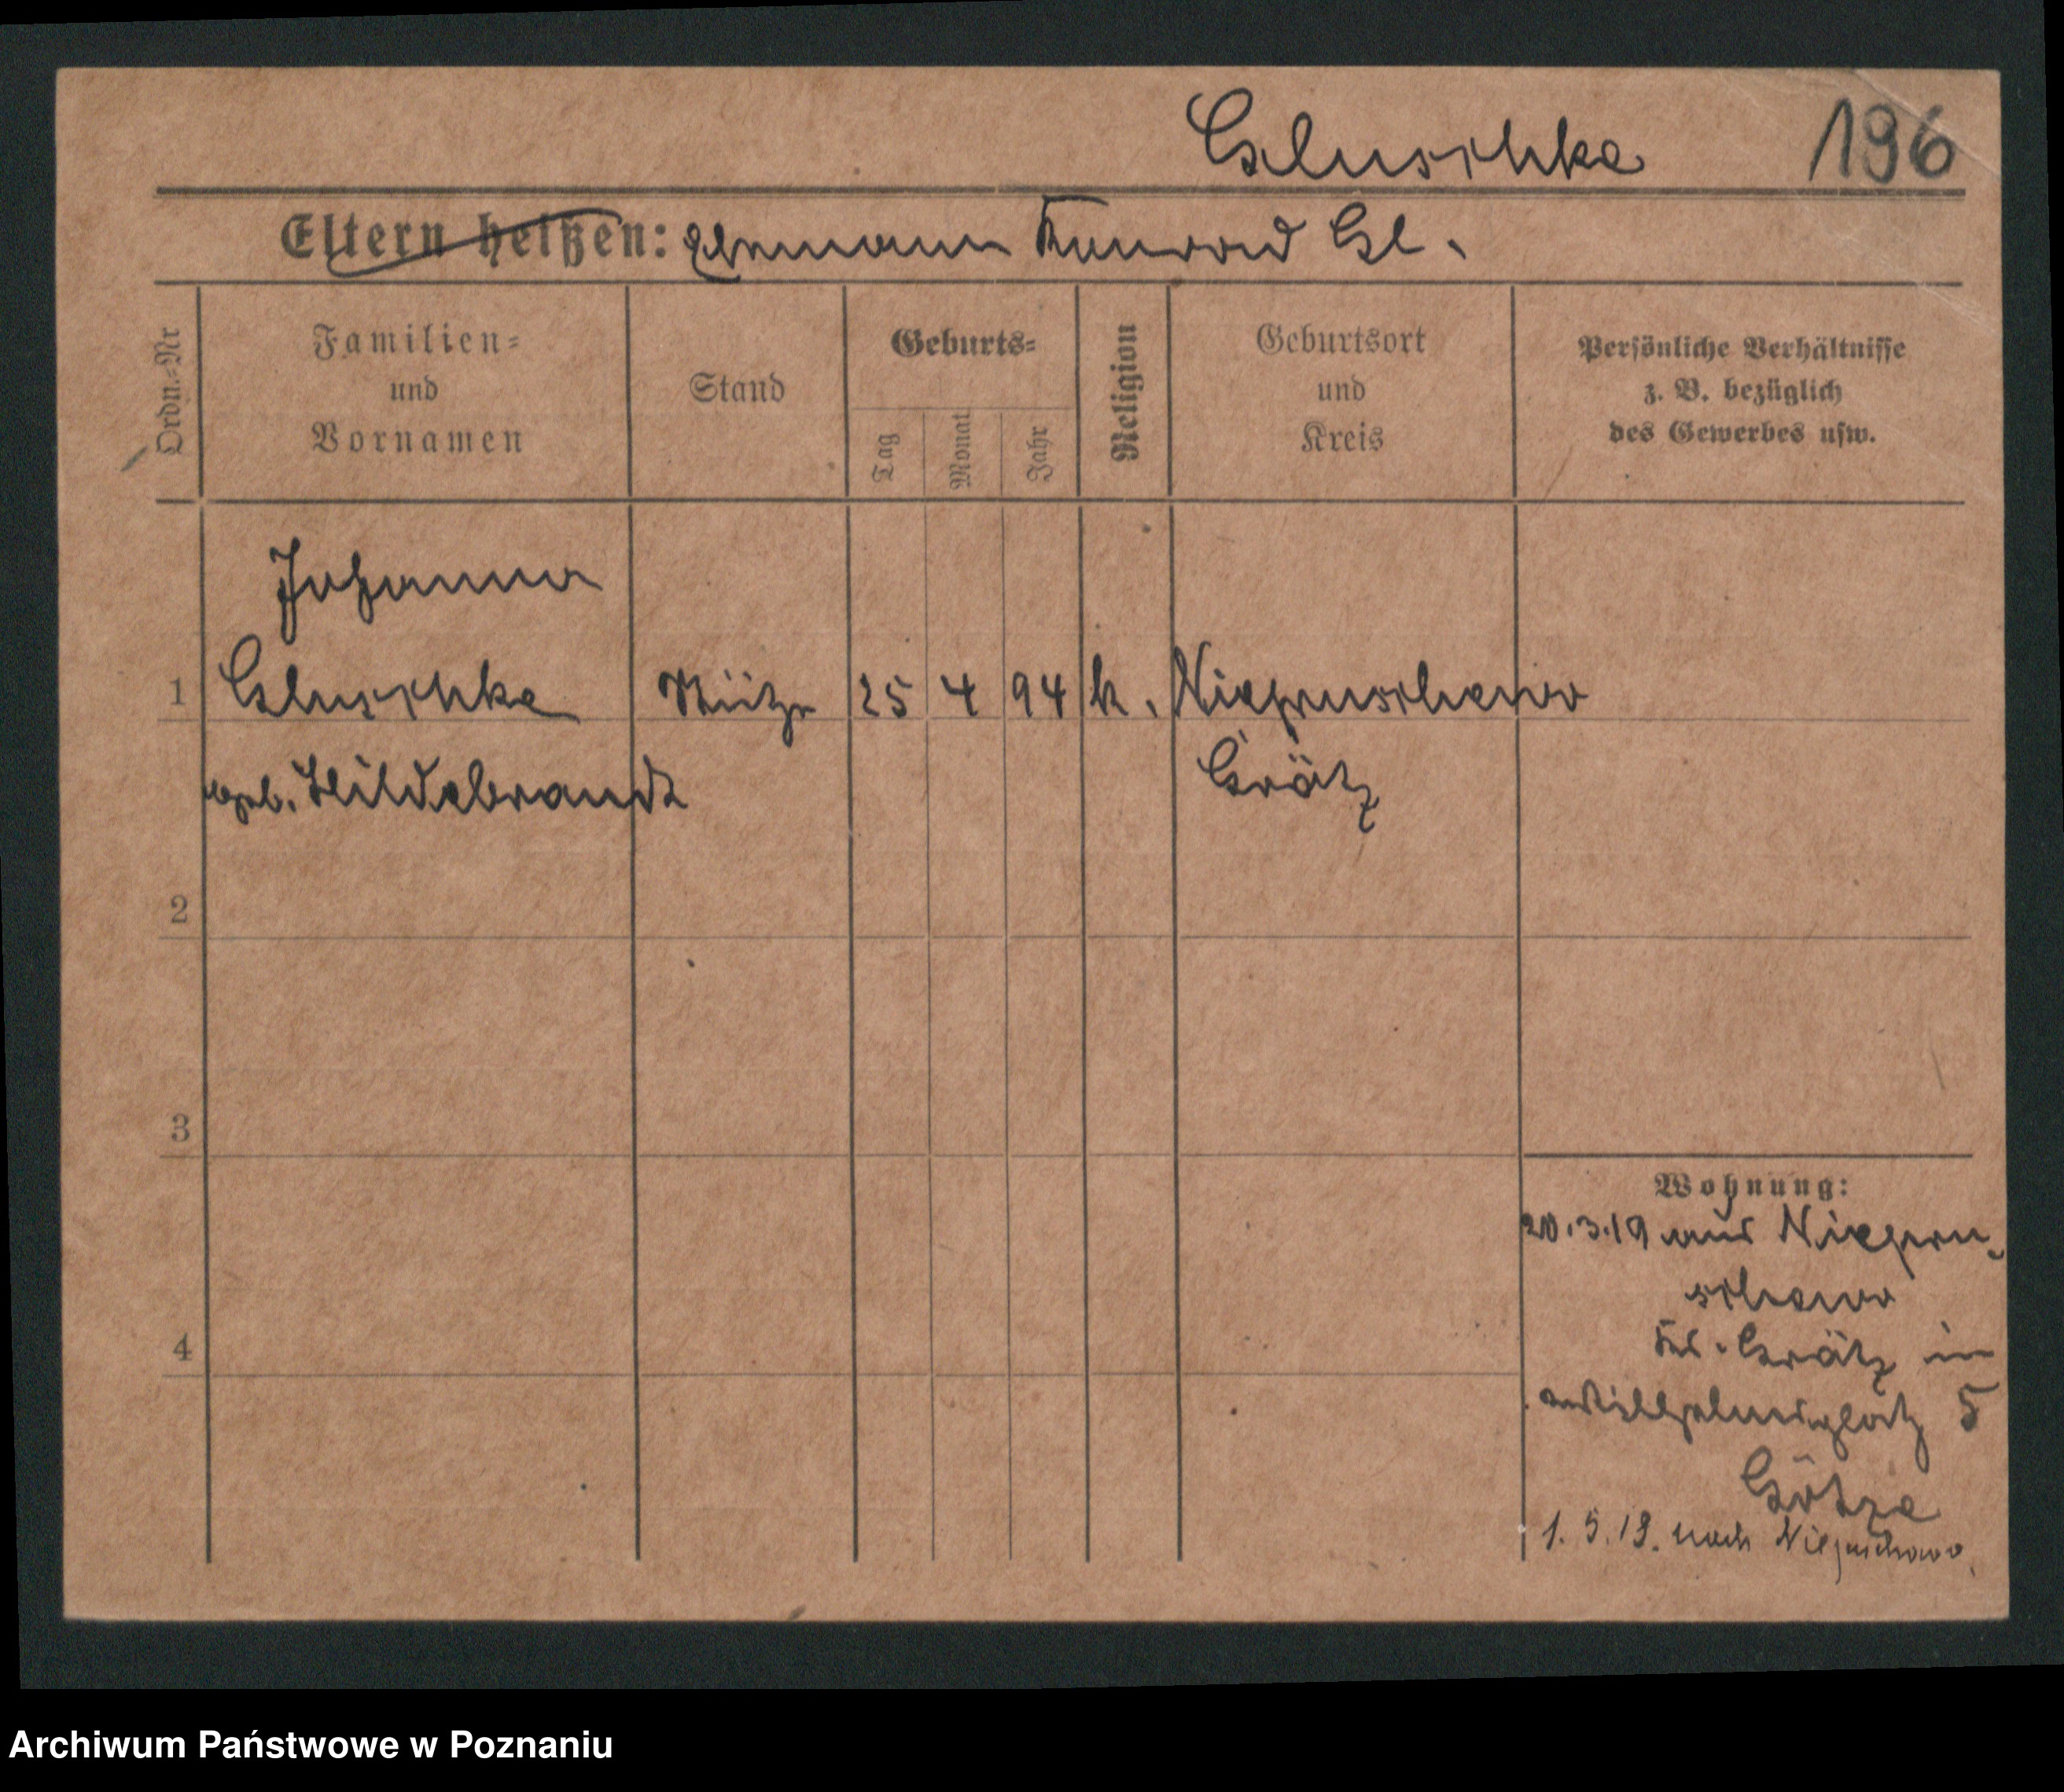 Gluschke 196
Eltern heißen: Ehemann Konrad Gl.
Ordn.=Nr
Familien=
und
Vornamen
Stand
Geburts=
Tag
Monat
Jahr
Religion
Geburtsort
und
Kreis
Persönliche Verhältnisse
z. B. bezüglich
des Gewerbes usw.
Johanna
1 Gluschke 25 4 94 k. Niepruschewo
geb. Hildebrandt Grätz
2
3
4
Wohnung:
20.3.19 aus Niepru-
schewo
Kr. Grätz in
Wilhelmsplatz 5
Götze
1. 5. 19. nach Niepruschewo